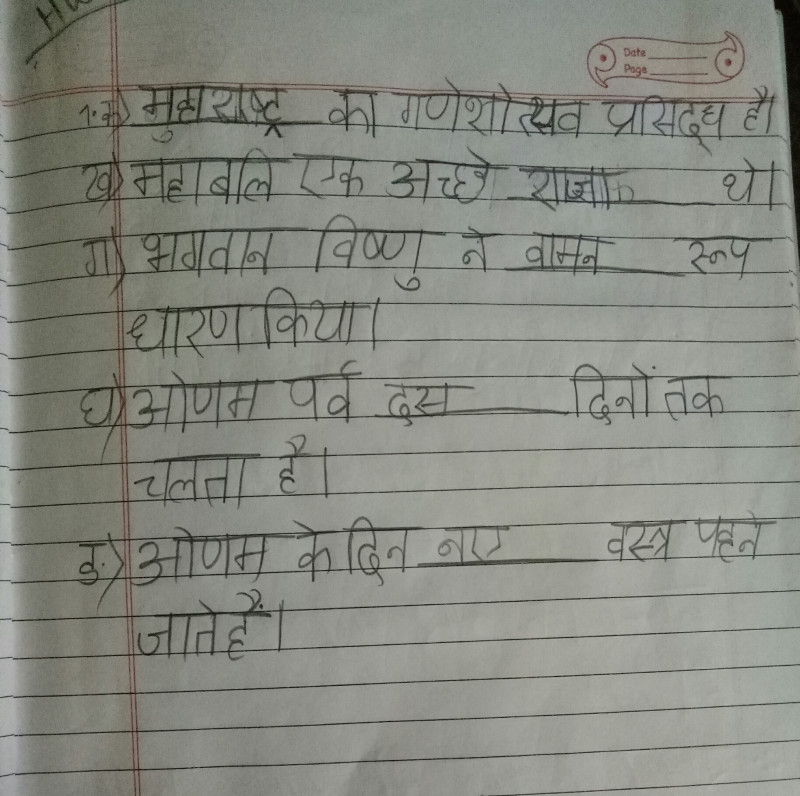 HW
Date
Page
1.क) मुहाराष्ट्र का गणेशोत्सव प्रसिद्ध है।
ख) महाबलि एक अच्छे राजा थे।
ग) भगवान विष्णु ने वामन रूप
धारण किया।
घ) ओणम पर्व दस दिनों तक
चलता है।
ङ) ओणम के दिन नए वस्त्र पहने
जाते हैं।